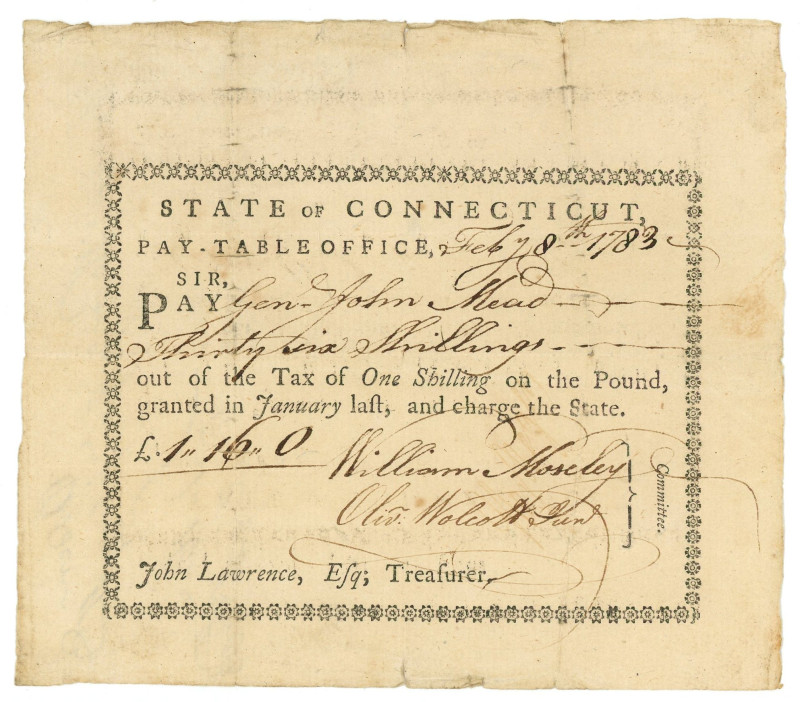 STATE OF CONNECTICUT,
PAY-TABLE OFFICE, Feby 8th 1783
SIR,
PAY Genl John Mead
Thirty six Shillings
out of the Tax of One Shilling on the Pound,
granted in January laſt, and charge the State.
£. 1" 16" 0
William Moseley
Olivr. Wolcott Junr
Committee.
John Lawrence, Eſq; Treaſurer,